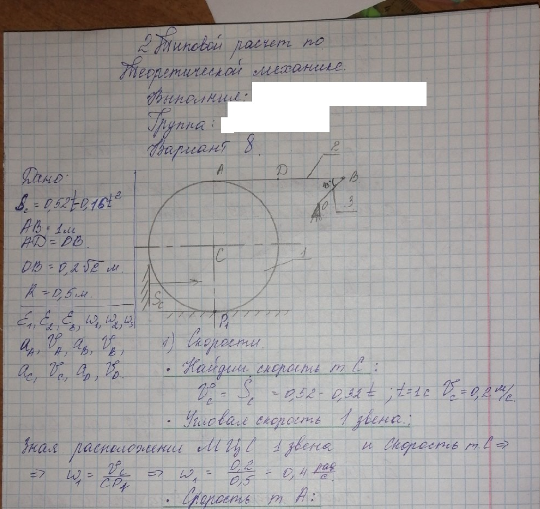 2 Типовой расчет по
Теоретической механике.
Выполнил:
Группа:
Вариант 8.
Дано:
S_c = 0,52t-0,16t²
AB = 1м
AD = DB.
OB = 0,2√2 м
R = 0,5м.
ε₁, ε₂, ε₃, ω₁, ω₂, ω₃
a_A, V_A, a_B, V_B,
a_C, V_C, a_D, V_D.
A D 2
B
3
C
1
S_c
P₁
1) Скорости
• Найдим скорость т С:
V_c = Ṡ_c = 0,52 - 0,32t ; t=1c V_c = 0,2 м/с
• Угловая скорость 1 звена:
Зная расположение МЦС 1 звена и скорость т С ⇒
⇒ ω₁ = V_c/CP₁ ⇒ ω₁ = 0,2/0,5 = 0,4 рад/с
• Скорость т А: